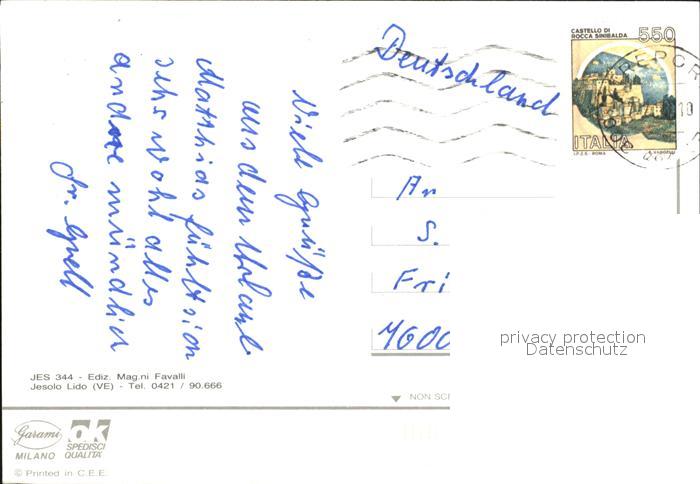 Deutschland
CASTELLO DI
ROCCA SINIBALDA
550
ITALIA
I.P.Z.S. ROMA
Viele Grüße
aus dem Urlaub
Matthias fühlt sich
sehr wohl alles
andere mündlich
An
S.
Fri
4600
privacy protection
Datenschutz
JES 344 - Ediz. Mag.ni Favalli
Jesolo Lido (VE) - Tel. 0421 / 90.666
NON SCR
Garami
MILANO
ok
SPEDISCI
QUALITÀ
© Printed in C.E.E.